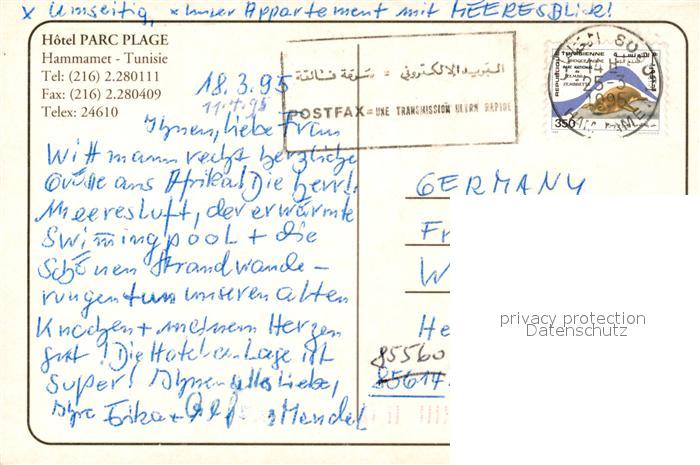 x Umseitig, x unser Appartement mit MEERESBLICK!
Hôtel PARC PLAGE
Hammamet - Tunisie
Tel: (216) 2.280111
Fax: (216) 2.280409
Telex: 24610
18.3.95
11.4.95
البريد الإلكتروني = سرعة فائقة
POSTFAX = UNE TRANSMISSION ULTRA RAPIDE
REPUBLIQUE TUNISIENNE
350
25-3
1995
HAMMAMET
Ihnen, liebe Frau
Wittmann recht herzliche
Grüße aus Afrika! Die herrl.
Meeresluft, der erwärmte
Swimingpool + die
schönen Strandwande-
rungen tun unseren alten
Knochen + meinem Herzen
gut! Die Hotelanlage ist
super! Ihnen alles Liebe,
Ihre Erika + Mendel
GERMANY
Fr
W
He
85560
85614
privacy protection
Datenschutz